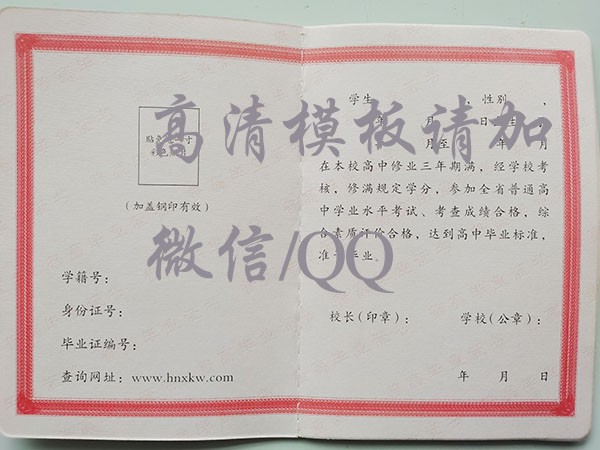 贴
寸
(加盖钢印有效)
学籍号:
身份证号:
毕业证编号:
查询网址: www.hnxkw.com
学生 , 性别 ,
年 月 日
月至 年 月
在本校高中修业三年期满, 经学校考
核, 修满规定学分, 参加全省普通高
中学业水平考试、考查成绩合格, 综
合素质评价合格, 达到高中毕业标准,
准予毕业.
校长(印章): 学校(公章):
年 月 日
高清模板请加
微信/QQ